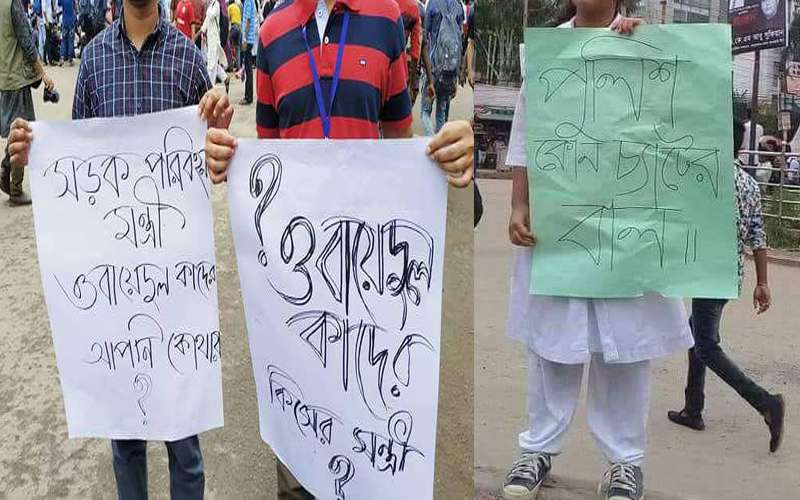 সড়ক পরিবহন
মন্ত্রী
ওবায়েদুল কাদের
আপনি কোথায়
?
?
ওবায়েদুল
কাদের
কিসের মন্ত্রী
?
পুলিশ
কোন চ্যাটের
বাল ॥